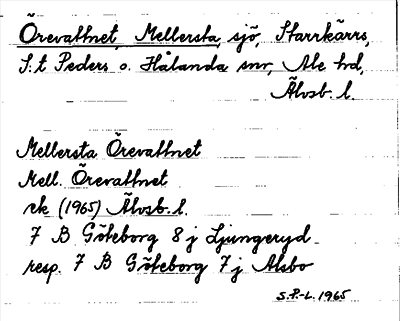 Örevattnet, Mellersta, sjö, Starrkärrs,
S:t Peders o. Hålanda snr, Ale hd,
Älvsb. l.
Mellersta Örevattnet
Mell. Örevattnet
ek (1965) Älvsb. l.
7 B Göteborg 8 j Ljungeryd
resp. 7 B Göteborg 7 j Alsbo
S.P.-L. 1965